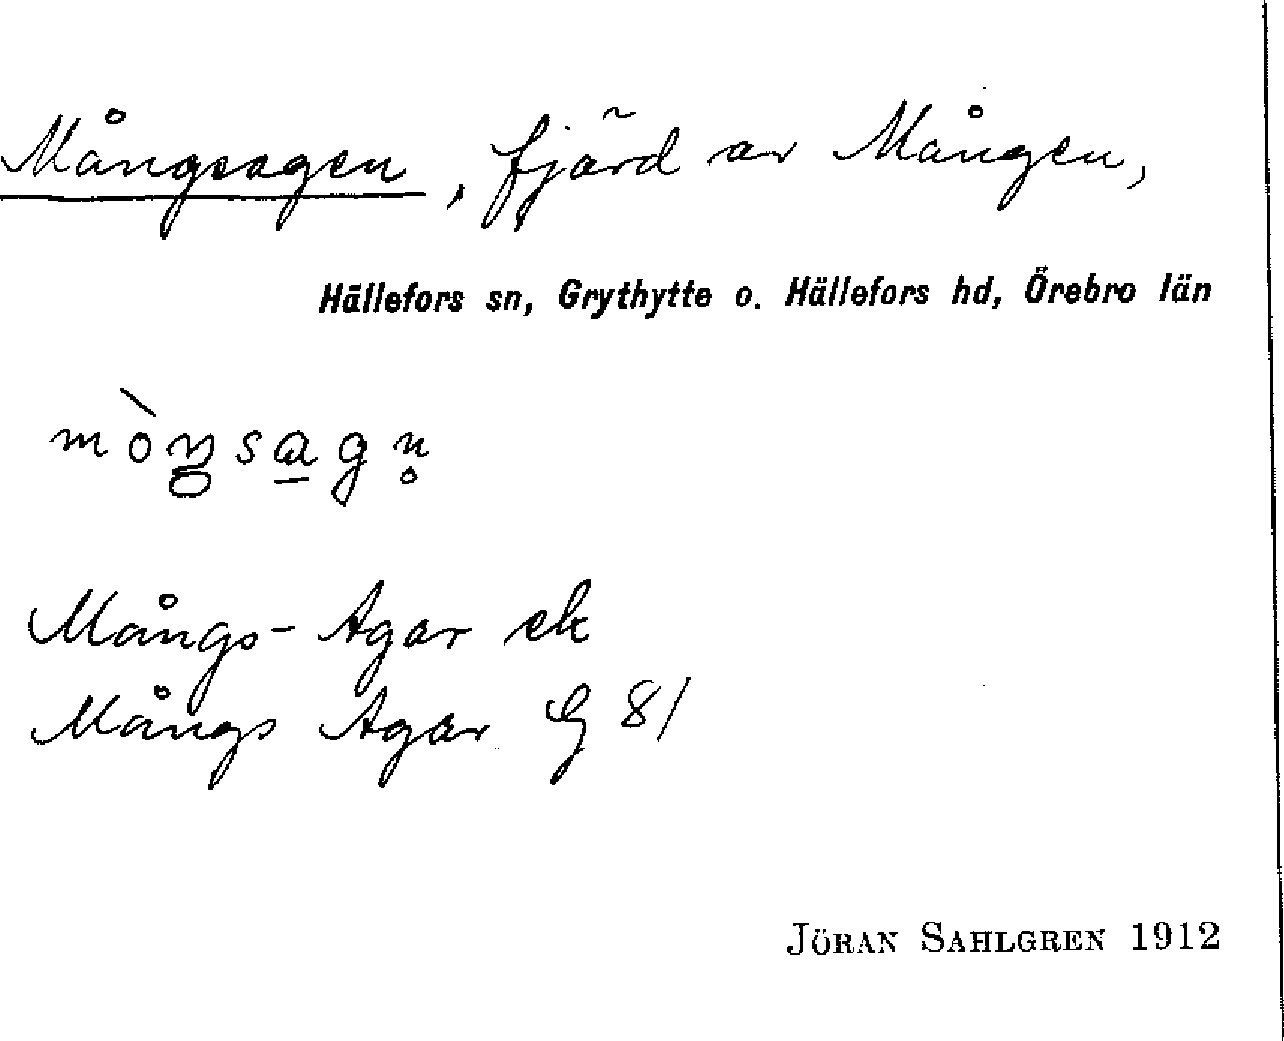 Mångsagen, fjärd av Mången,
Hällefors sn, Grythytte o. Hällefors hd, Örebro län
mòŋsa̲gn̥
Mångs-Agar ek
Mångs Agar G 81
JÖRAN SAHLGREN 1912